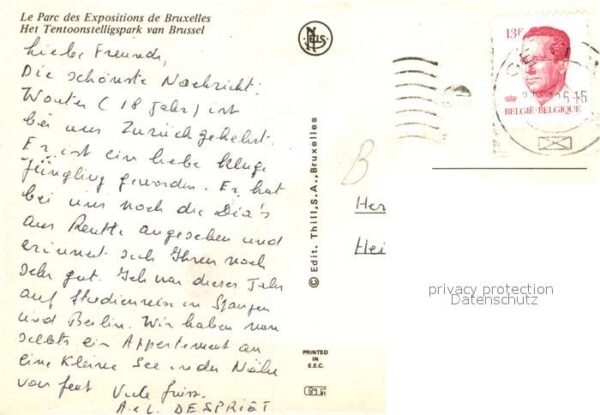 Le Parc des Expositions de Bruxelles
Het Tentoonstelligspark van Brussel
Liebe Freunde,
Die schönste Nachricht:
Wouter (18 Jahr) ist
bei uns Zurückgekehrt.
Er ist ein liebe kluge
Jüngling geworden. Er hat
bei uns noch die Dia's
aus Reutte angesehen und
erinnert sich Ihnen noch
sehr gut. Ich war dieses Jahr
auf Studienreise in Spanien
und Berlin. Wir haben nun
selbst ein Appartement an
eine Kleine See in der Nähe
von Gent Viele Grüsse
A. & L. DESPRIET
NELS
© Edit. Thill, S.A., Bruxelles
PRINTED
IN
E.E.C.
13F
BELGIË-BELGIQUE
B
Her
Hei
privacy protection
Datenschutz